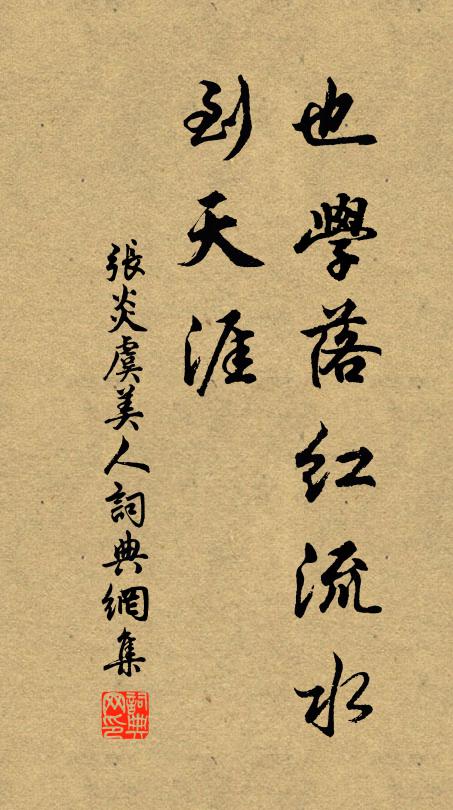 也學落紅流水
到天涯
張炎虞美人詞典網集
詞典网印